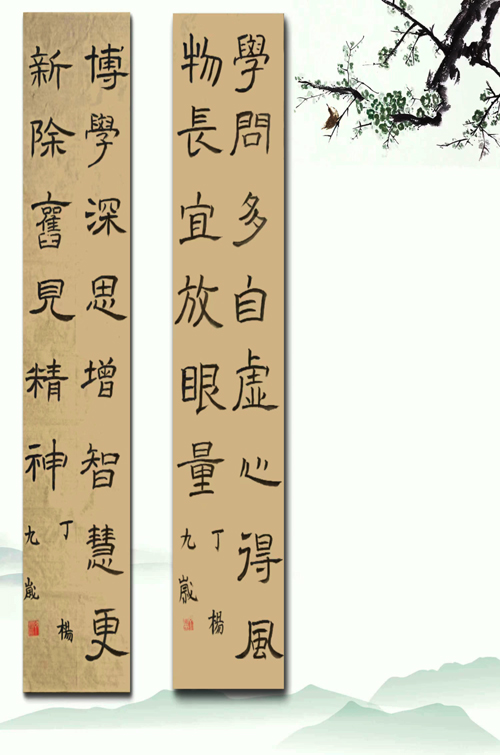 學問多自虛心得風
物長宜放眼量
丁楊
九歲
博學深思增智慧更
新除舊見精神
丁楊
九歲